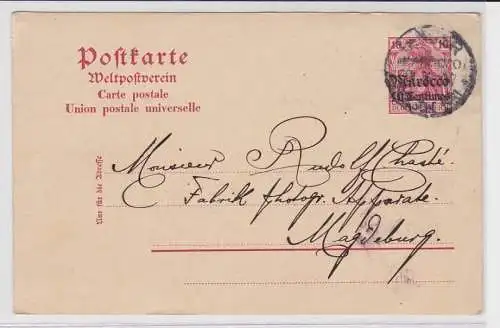 Postkarte
Weltpostverein
Carte postale
Union postale universelle
10 10
Marocco
10 Centimos
Nur für die Adresse
Monsieur Rudolf Chasté.
Fabrik photogr. Apparate.
Magdeburg.